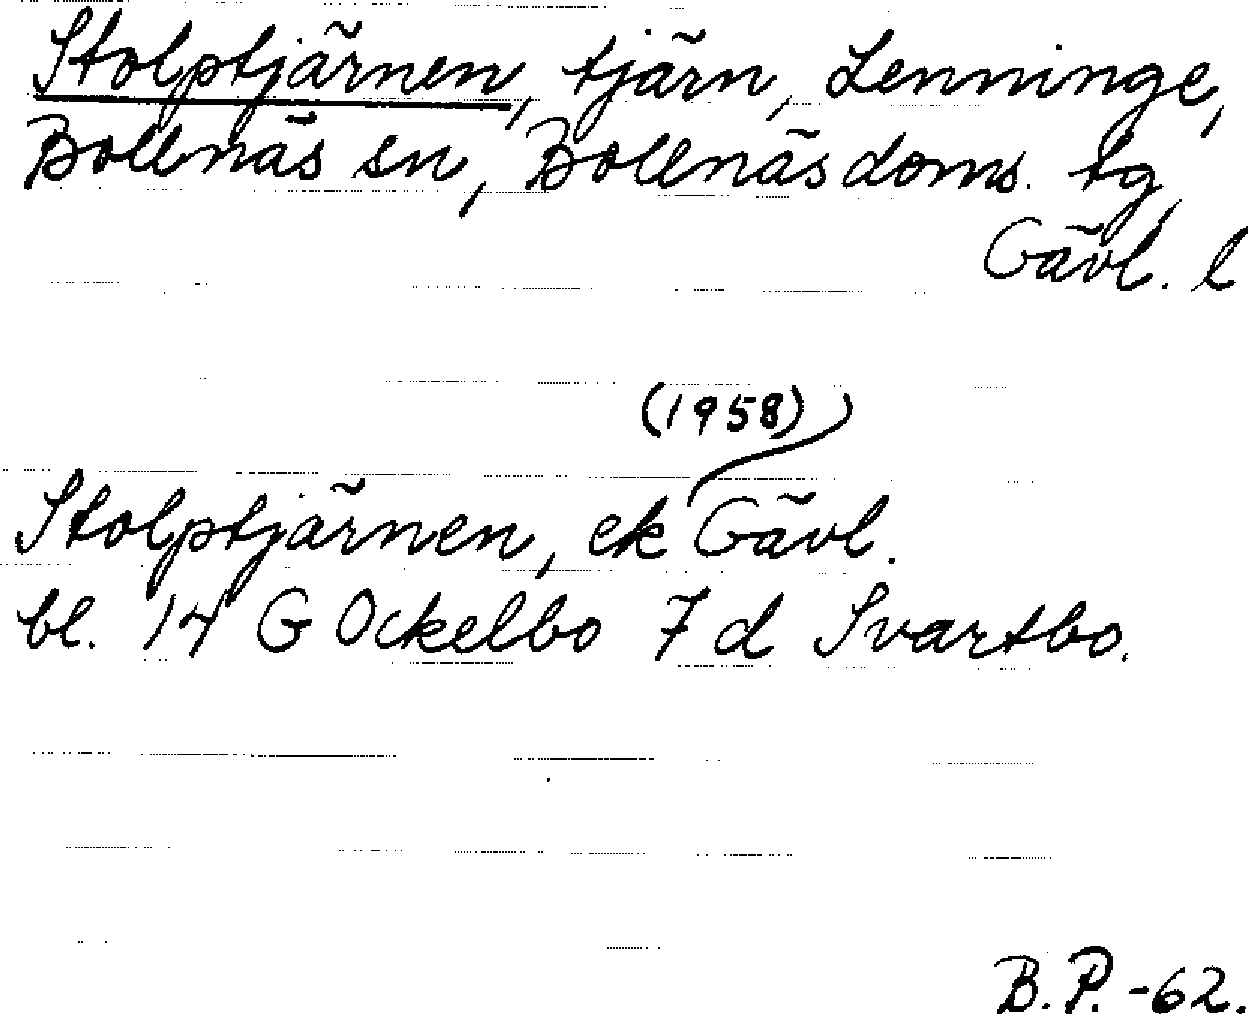 Stolptjärnen, tjärn, Lenninge,
Bollnäs sn, Bollnäs doms. tg,
Gävl. l
(1958)
Stolptjärnen, ek Gävl.
bl. 14 G Ockelbo 7 d Svartbo.
B.P. -62.